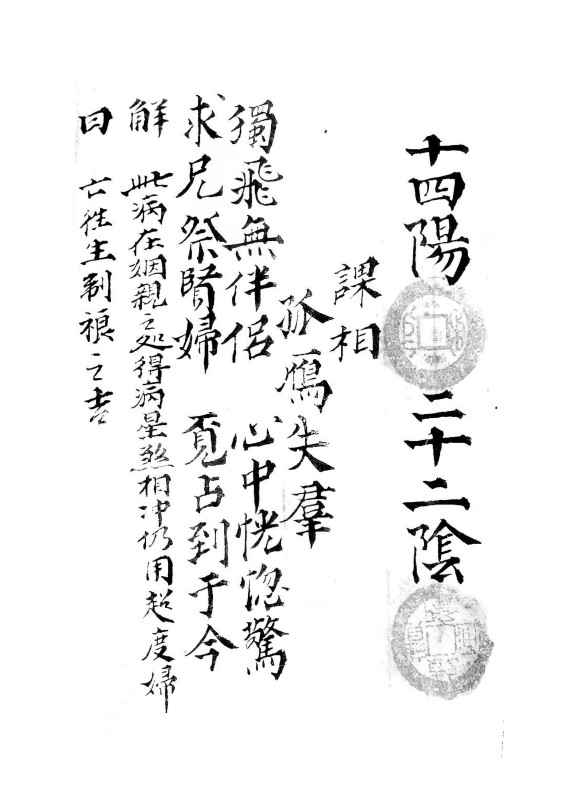 十四陽 二十二陰
課相
孤鴈失羣
獨飛無伴侶 心中恍惚驚
求凡祭賢婦 覓占到于今
解 此病在姻親之処得病星煞相冲仍用超度婦
曰 亡往生制 之吉